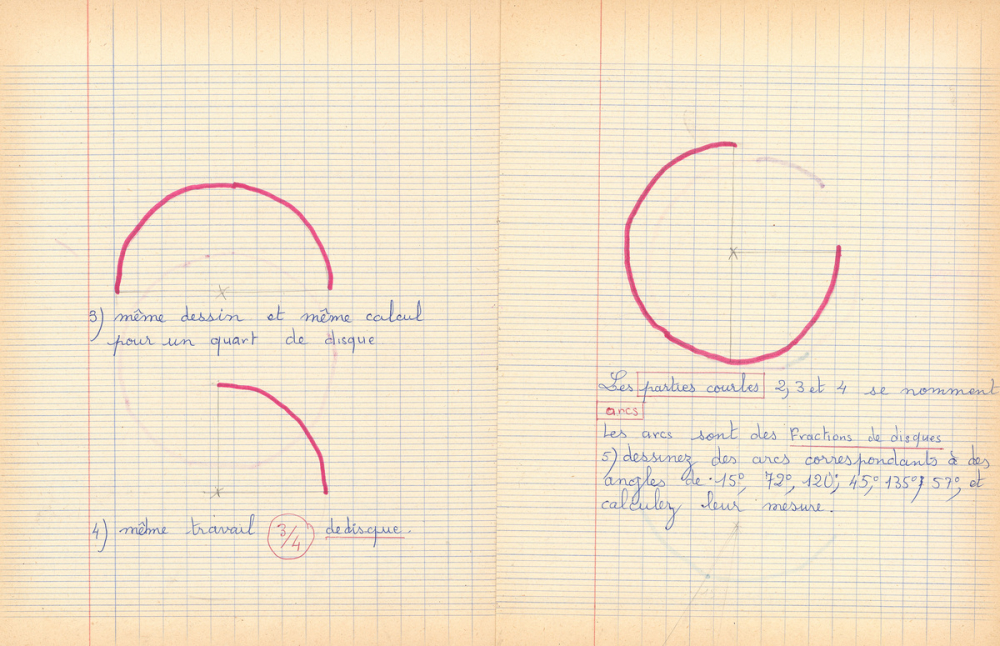 3) même dessin et même calcul
pour un quart de disque
4) même travail 3/4 de disque.
Les parties courbes 2, 3 et 4 se nomment
arcs
Les arcs sont des Fractions de disques
5) dessinez des arcs correspondants à des
angles de 15°, 72°, 120°, 45°, 135°, 57°, et
calculez leur mesure.